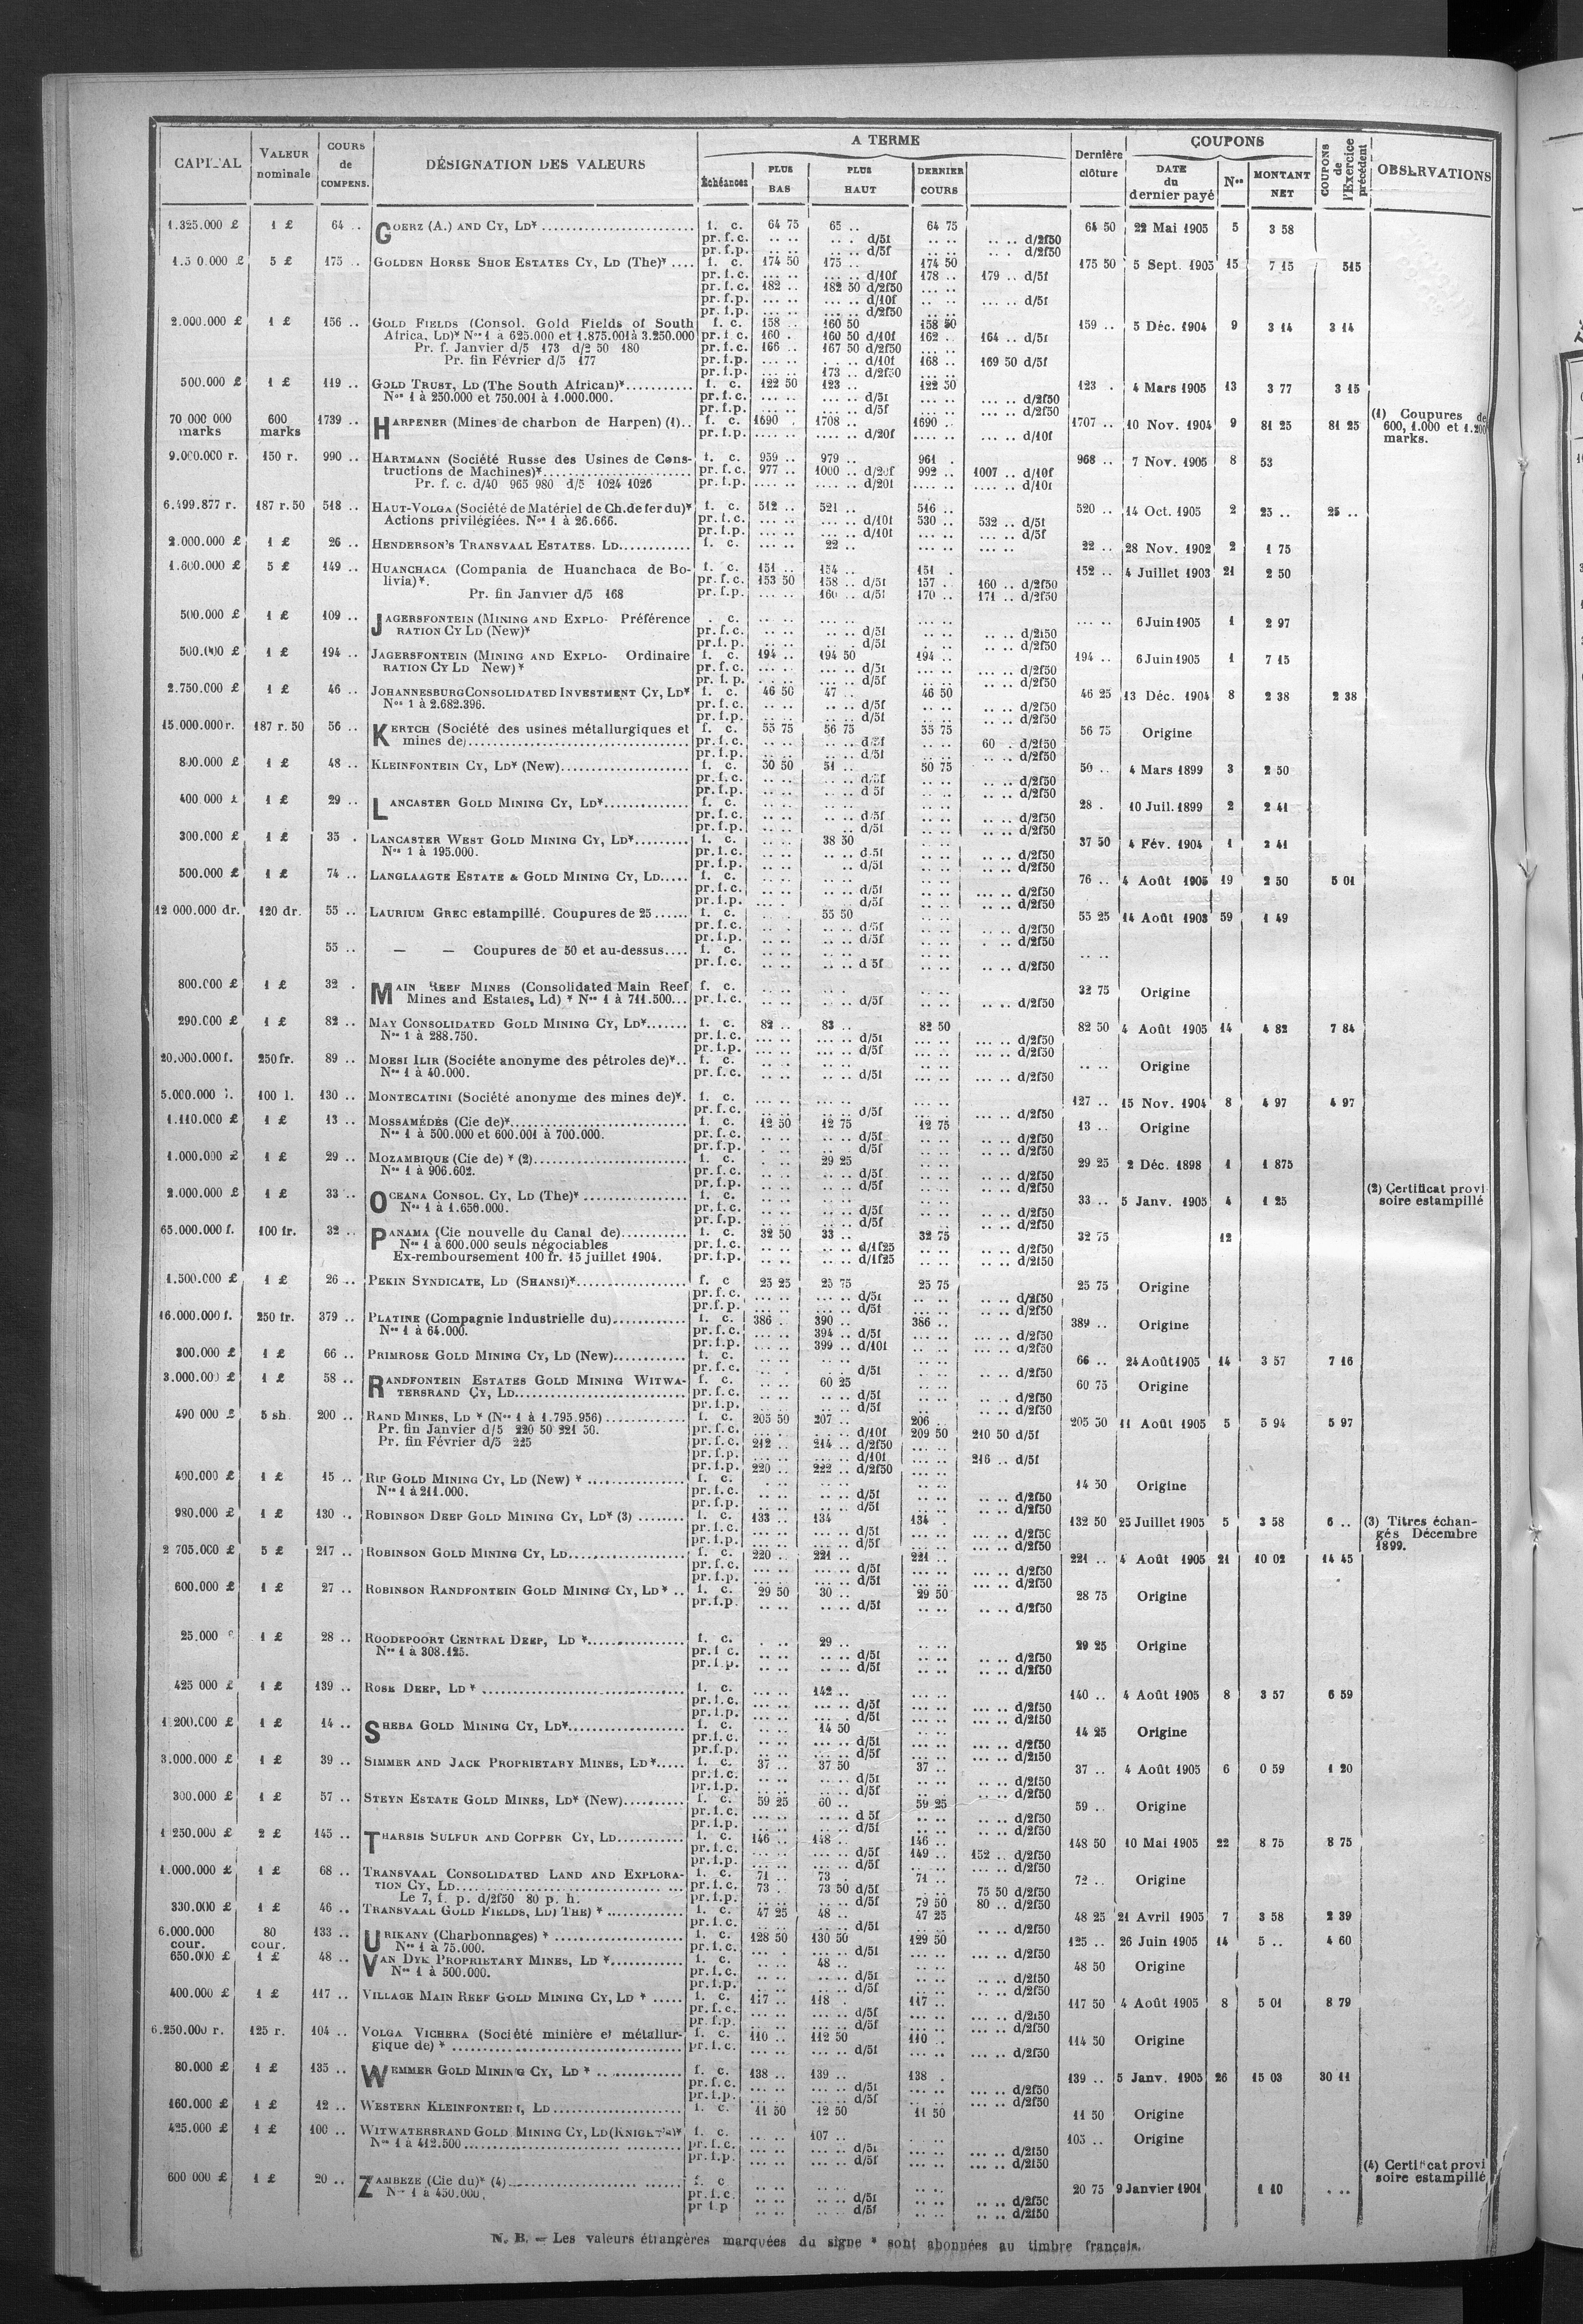 CAPITAL | VALEUR nominale | COURS de COMPENS. | DÉSIGNATION DES VALEURS | A TERME | Échéances | PLUS BAS | PLUS HAUT | DERNIER COURS | Dernière clôture | COUPONS | DATE du dernier payé | Nos | MONTANT NET | COUPONS de l'Exercice précédent | OBSERVATIONS
1.325.000 £ 1 £ 64 .. GOERZ (A.) AND CY, LD* f. c. 64 75 65 .. 64 75 64 50 22 Mai 1905 5 3 58
pr. f. c. .. .. .. . d/5f .. .. .. .. d/2f50
pr. f.p. .. .. .. .. d/5f .. .. .. . d/2f50
5 £ 175 .. GOLDEN HORSE SHOE ESTATES CY, LD (The)* f. c. 174 50 175 .. 174 50 175 50 5 Sept. 1905 15 7 15 515
pr. f. c. ... .. ... .. d/10f 178 .. 179 .. d/5f
pr. f. c. 182 .. 182 50 d/2f50 ... ..
pr. f.p. ... .. ... .. d/10f ... .. ... .. d/5f
pr. f.p. ... .. ... .. d/2f50 ... ..
2.000.000 £ 1 £ 156 .. GOLD FIELDS (Consol. Gold Fields of South f. c. 158 .. 160 50 158 50 159 .. 5 Déc. 1904 9 3 14 3 14
Africa, LD)* Nos 1 à 625.000 et 1.875.001 à 3.250.000 pr. f. c. 160 . 160 50 d/10f 162 .. 164 .. d/5f
Pr. f. Janvier d/5 173 d/2 50 180 pr. f.c. 166 .. 167 50 d/2f50 ... ..
Pr. fin Février d/5 177 pr. f.p. ... .. .. d/10f 168 .. 169 50 d/5f
pr. f.p. ... .. 173 .. d/2f50 ... ..
500.000 £ 1 £ 119 .. GOLD TRUST, LD (The South African)* f. c. 122 50 123 .. 122 50 123 . 4 Mars 1905 13 3 77 3 15
Nos 1 à 250.000 et 750.001 à 1.000.000. pr. f. c. ... .. ... .. d/5f ... .. ... .. d/2f50
pr. f.p. ... .. ... .. d/5f ... .. ... .. d/2f50
70 000 000 marks 600 marks 1739 .. HARPENER (Mines de charbon de Harpen) (1) f. c. 1690 . 1708 .. 1690 .. 1707 .. 10 Nov. 1904 9 81 25 81 25 (1) Coupures de 600, 1.000 et 1.200 marks.
pr. f.p. .... .. .... .. d/20f .... .. .... .. d/10f
9.000.000 r. 150 r. 990 .. HARTMANN (Société Russe des Usines de Cons- f. c. 959 .. 979 .. 961 . 968 .. 7 Nov. 1905 8 53
tructions de Machines)* pr. f. c. 977 .. 1000 .. d/20f 992 .. 1007 .. d/10f
Pr. f. c. d/40 965 980 d/5 1024 1026 pr. f.p. .... .. .... .. d/20f .... .. .... .. d/10f
6.499.877 r. 187 r. 50 518 .. HAUT-VOLGA (Société de Matériel de Ch. de fer du)* f. c. 512 .. 521 .. 516 .. 520 .. 14 Oct. 1905 2 25 .. 25 ..
Actions privilégiées. Nos 1 à 26.666. pr. f. c. ... .. ... .. d/10f 530 .. 532 .. d/5f
pr. f.p. ... .. ... .. d/10f ... .. ... .. d/5f
2.000.000 £ 1 £ 26 .. HENDERSON'S TRANSVAAL ESTATES. LD f. c. ... .. 22 .. ... .. 22 .. 28 Nov. 1902 2 1 75
1.600.000 £ 5 £ 149 .. HUANCHACA (Compania de Huanchaca de Bo- f. c. 151 .. 154 .. 151 . 152 .. 4 Juillet 1903 21 2 50
livia)*. pr. f. c. 153 50 158 .. d/5f 157 . 160 .. d/2f50
Pr. fin Janvier d/5 168 pr. f.p. ... .. 160 .. d/5f 170 .. 171 .. d/2f50
500.000 £ 1 £ 109 .. JAGERSFONTEIN (MINING AND EXPLO- Préférence . c. ... .. ... .. ... .. ... .. 6 Juin 1905 1 2 97
RATION CY LD (New)* pr. f. c. .. .. .. .. d/5f .. .. .. .. d/2f50
pr. f. p. .. .. .. .. d/5f .. .. .. .. d/2f50
500.000 £ 1 £ 194 .. JAGERSFONTEIN (MINING AND EXPLO- Ordinaire f. c. 194 .. 194 50 194 .. 194 .. 6 Juin 1905 1 7 15
RATION CY LD New)* pr. f. c. ... .. ... .. d/5f ... .. ... .. d/2f50
pr. f. p. ... .. ... .. d/5f ... .. ... .. d/2f50
2.750.000 £ 1 £ 46 .. JOHANNESBURG CONSOLIDATED INVESTMENT CY, LD* f. c. 46 50 47 .. 46 50 46 25 13 Déc. 1904 8 2 38 2 38
Nos 1 à 2.682.396. pr. f. c. .. .. .. .. d/5f .. .. .. .. d/2f50
pr. f.p. .. .. .. .. d/5f .. .. .. .. d/2f50
15.000.000 r. 187 r. 50 56 .. KERTCH (Société des usines métallurgiques et f. c. 55 75 56 75 55 75 56 75 Origine
mines de) pr. f. c. .. .. .. .. d/5f .. .. 60 . d/2f50
pr. f.p. .. .. .. .. d/5f .. .. .. .. d/2f50
800.000 £ 1 £ 48 .. KLEINFONTEIN CY, LD* (New) f. c. 50 50 51 .. 50 75 50 .. 4 Mars 1899 3 2 50
pr. f. c. .. .. .. .. d/5f .. .. .. .. d/2f50
pr. f.p. .. .. .. .. d 5f .. .. .. .. d/2f50
400 000 £ 1 £ 29 .. LANCASTER GOLD MINING CY, LD* f. c. .. .. .. .. .. .. 28 . 10 Juil. 1899 2 2 41
pr. f. c. .. .. .. .. d/5f .. .. .. .. d/2f50
pr. f.p. .. .. .. .. d/5f .. .. .. .. d/2f50
300.000 £ 1 £ 35 . LANCASTER WEST GOLD MINING CY, LD* f. c. .. .. 38 50 .. .. 37 50 4 Fév. 1904 1 2 41
Nos 1 à 195.000. pr. f. c. .. .. .. .. d/5f .. .. .. .. d/2f50
pr. f.p. .. .. .. .. d/5f .. .. .. .. d/2f50
500.000 £ 1 £ 74 .. LANGLAAGTE ESTATE & GOLD MINING CY, LD f. c. .. .. .. .. .. .. 76 .. 4 Août 1905 19 2 50 5 01
pr. f. c. .. .. .. .. d/5f .. .. ... .. d/2f50
pr. f.p. .. . .. .. d/5f .. .. ... .. d/2f50
12 000.000 dr. 120 dr. 55 .. LAURIUM GREC estampillé. Coupures de 25 f. c. .. . 55 50 .. .. 55 25 14 Août 1903 59 1 49
pr. f. c. .. . .. .. d/5f .. .. .. .. d/2f50
pr. f.p. .. .. .. .. d/5f .. .. . .. d/2f50
55 .. — — Coupures de 50 et au-dessus f. c. .. .. .. .. .. .. .. ..
pr. f. c. .. .. .. .. d 5f .. .. .. .. d/2f50
800.000 £ 1 £ 32 . MAIN REEF MINES (Consolidated Main Reef f. c. .. .. .. .. .. .. 32 75 Origine
Mines and Estates, Ld) * Nos 1 à 711.500 pr. f. c. .. .. .. .. d/5f .. .. .. .. d/2f50
290.000 £ 1 £ 82 .. MAY CONSOLIDATED GOLD MINING CY, LD* f. c. 82 .. 83 .. 82 50 82 50 4 Août 1905 14 4 82 7 84
Nos 1 à 288.750. pr. f. c. ... .. ... .. d/5f ... .. ... .. d/2f50
pr. f.p. ... .. ... .. d/5f ... .. ... .. d/2f50
20.000.000 f. 250 fr. 89 .. MOESI ILIR (Sociéte anonyme des pétroles de)* f. c. .. .. .. .. .. .. .. .. Origine
Nos 1 à 40.000. pr. f. c. .. .. .. .. d/5f .. .. ... .. d/2f50
5.000.000 l. 100 l. 130 .. MONTECATINI (Société anonyme des mines de)*. f. c. ... .. ... .. ... .. 127 .. 15 Nov. 1904 8 4 97 4 97
pr. f. c. ... .. ... .. d/5f ... .. ... .. d/2f50
1.110.000 £ 1 £ 13 .. MOSSAMÉDÈS (Cie de)* f. c. 12 50 12 75 12 75 13 .. Origine
Nos 1 à 500.000 et 600.001 à 700.000. pr. f. c. .. .. .. .. d/5f .. .. .. .. d/2f50
pr. f.p. .. .. .. .. d/5f .. .. .. .. d/2f50
1.000.000 £ 1 £ 29 .. MOZAMBIQUE (Cie de) * (2) f. c. . .. 29 25 .. .. 29 25 2 Déc. 1898 1 1 875
Nos 1 à 906.602. pr. f. c. .. .. .. .. d/5f .. .. .. .. d/2f50
pr. f.p. .. .. .. .. d/5f .. .. .. .. d/2f50
2.000.000 £ 1 £ 33 .. OCEANA CONSOL. CY, LD (The)* f. c. .. .. .. .. .. .. 33 .. 5 Janv. 1905 4 1 25 (2) Certificat provi soire estampillé
Nos 1 à 1.650.000. pr. f. c. .. .. .. .. d/5f .. .. .. .. d/2f50
pr. f.p. .. .. .. .. d/5f .. .. .. .. d/2f50
65.000.000 f. 100 fr. 32 .. PANAMA (Cie nouvelle du Canal de) f. c. 32 50 33 .. 32 75 32 75 12
Nos 1 à 600.000 seuls négociables pr. f. c. .. .. .. .. d/1f25 .. .. .. .. d/2f50
Ex-remboursement 100 fr. 15 juillet 1904. pr. f.p. .. .. .. .. d/1f25 .. .. .. .. d/2f50
1.500.000 £ 1 £ 26 .. PEKIN SYNDICATE, LD (SHANSI)* f. c 25 25 25 75 25 75 25 75 Origine
pr. f. c. ... .. ... .. d/5f ... .. .. .. d/2f50
pr. f. p. ... .. ... .. d/5f ... .. .. .. d/2f50
16.000.000 f. 250 fr. 379 .. PLATINE (Compagnie Industrielle du) f. c. 386 . 390 .. 386 .. 389 .. Origine
Nos 1 à 64.000. pr. f. c. ... .. 394 .. d/5f ... .. ... .. d/2f50
pr. f.p. ... .. 399 .. d/10f ... .. ... .. d/2f50
300.000 £ 1 £ 66 .. PRIMROSE GOLD MINING CY, LD (New) f. c. .. .. .. .. .. .. 66 .. 24 Août 1905 14 3 57 7 16
pr. f. c. .. .. .. . d/5f .. .. ... .. d/2f50
3.000.000 £ 1 £ 58 .. RANDFONTEIN ESTATES GOLD MINING WITWA- f. c. .. .. 60 25 .. .. 60 75 Origine
TERSRAND CY, LD pr. f. c. .. .. .. .. d/5f .. .. .. .. d/2f50
pr. f.p. .. .. .. .. d/5f .. .. .. .. d/2f50
490 000 £ 5 sh. 200 .. RAND MINES, LD * (Nos 1 à 1.795.956) f. c. 205 50 207 .. 206 .. 205 50 11 Août 1905 5 5 94 5 97
Pr. fin Janvier d/5 220 50 221 50. pr. f. c. ... . ... .. d/10f 209 50 210 50 d/5f
Pr. fin Février d/5 225 pr. f. c. 212 .. 214 .. d/2f50 ... ..
pr. f.p. ... .. ... .. d/10f ... .. 216 .. d/5f
pr. f.p. 220 .. 222 .. d/2f50 ... ..
400.000 £ 1 £ 15 .. RIP GOLD MINING CY, LD (New) * f. c. . .. .. .. .. .. 14 50 Origine
Nos 1 à 211.000. pr. f. c. .. .. .. .. d/5f .. .. .. .. d/2f50
pr. f.p. .. .. .. .. d/5f .. .. .. .. d/2f50
980.000 £ 1 £ 130 .. ROBINSON DEEP GOLD MINING CY, LD* (3) f. c. 133 .. 134 134 .. 132 50 25 Juillet 1905 5 3 58 6 .. (3) Titres échan- gés Décembre 1899.
pr. f. c. ... .. ... .. d/5f ... .. ... .. d/2f50
pr. f.p. ... .. ... .. d/5f ... .. ... .. d/2f50
2 705.000 £ 5 £ 217 .. ROBINSON GOLD MINING CY, LD f. c. 220 .. 221 .. 221 .. 221 .. 4 Août 1905 21 10 02 14 45
pr. f. c. ... .. ... .. d/5f ... .. ... .. d/2f50
pr. f.p. ... .. ... .. d/5f ... .. ... .. d/2f50
600.000 £ 1 £ 27 .. ROBINSON RANDFONTEIN GOLD MINING CY, LD* f. c. 29 50 30 .. 29 50 28 75 Origine
pr. f.p. .. .. .. .. d/5f .. .. .. .. d/2f50
25.000 1 £ 28 .. ROODEPOORT CENTRAL DEEP, LD * f. c. . .. 29 .. .. .. 29 25 Origine
Nos 1 à 308.125. pr. f. c. .. .. .. .. d/5f .. .. .. .. d/2f50
pr. f.p. .. .. .. .. d/5f .. .. .. .. d/2f50
425 000 £ 1 £ 139 .. ROSE DEEP, LD * f. c. ... .. 142 .. ... .. 140 .. 4 Août 1905 8 3 57 6 59
pr. f. c. ... .. ... .. d/5f ... .. ... .. d/2f50
pr. f.p. ... .. ... . d/5f ... .. ... .. d/2f50
1.200.000 £ 1 £ 14 .. SHEBA GOLD MINING CY, LD* f. c. .. . 14 50 .. .. 14 25 Origine
pr. f. c. .. .. ... .. d/5f .. .. ... .. d/2f50
pr. f.p. .. .. ... .. d/5f .. .. ... .. d/2f50
3.000.000 £ 1 £ 39 .. SIMMER AND JACK PROPRIETARY MINES, LD* f. c. 37 .. 37 50 37 .. 37 .. 4 Août 1905 6 0 59 1 20
pr. f. c. .. .. .. .. d/5f .. .. .. .. d/2f50
pr. f.p. .. .. .. .. d/5f .. .. .. .. d/2f50
300.000 £ 1 £ 57 .. STEYN ESTATE GOLD MINES, LD* (New) f. c. 59 25 60 .. 59 25 59 .. Origine
pr. f. c. ... .. ... .. d 5f .. .. ... .. d/2f50
pr. f.p. ... .. ... .. d/5f .. .. ... .. d/2f50
1 250.000 £ 2 £ 145 .. THARSIS SULFUR AND COPPER CY, LD f. c. 146 .. 148 .. 146 .. 148 50 10 Mai 1905 22 8 75 8 75
pr. f. c. ... .. ... .. d/5f 149 .. 152 .. d/2f50
pr. f.p. ... .. ... .. d/5f .. .. ... .. d/2f50
1.000.000 £ 1 £ 68 .. TRANSVAAL CONSOLIDATED LAND AND EXPLORA- f. c. 71 .. 73 . 71 .. 72 .. Origine
TION CY, LD pr. f. c. 73 . 73 50 d/5f . .. 75 50 d/2f50
Le 7, f. p. d/2f50 80 p. h. pr. f.p. .. .. .. .. d/5f 79 50 80 .. d/2f50
330.000 £ 1 £ 46 .. TRANSVAAL GOLD FIELDS, LD) THE) * f. c. 47 25 48 .. 47 25 48 25 21 Avril 1905 7 3 58 2 39
pr. f. c. .. .. .. .. d/5f .. .. .. .. d/2f50
6.000.000 cour. 80 cour. 133 .. URIKANY (Charbonnages) * f. c. 128 50 130 50 129 50 125 .. 26 Juin 1905 14 5 .. 4 60
Nos 1 à 75.000. pr. f. c. ... . ... .. d/5f ... .. ... .. d/2f50
650.000 £ 1 £ 48 .. VAN DYK PROPRIETARY MINES, LD * f. c. .. .. 48 .. .. .. 48 50 Origine
Nos 1 à 500.000. pr. f. c. .. .. .. .. d/5f .. .. .. .. d/2f50
pr. f.p. .. .. .. .. d/5f .. .. .. .. d/2f50
400.000 £ 1 £ 117 .. VILLAGE MAIN REEF GOLD MINING CY, LD * f. c. 117 .. 118 . 117 .. 117 50 4 Août 1905 8 5 01 8 79
pr. f. c. ... .. ... .. d/5f ... .. ... .. d/2f50
pr. f.p. ... .. ... .. d/5f ... .. ... .. d/2f50
6.250.000 r. 125 r. 104 .. VOLGA VICHERA (Société minière et métallur- f. c. 110 .. 112 50 110 .. 114 50 Origine
gique de) * pr. f. c. ... .. ... .. d/5f ... .. ... .. d/2f50
80.000 £ 1 £ 135 .. WEMMER GOLD MINING CY, LD * f. c. 138 .. 139 .. 138 . 139 .. 5 Janv. 1905 26 15 03 30 11
pr. f. c. ... .. ... .. d/5f ... .. ... .. d/2f50
pr. f.p. ... .. ... .. d/5f ... .. ... .. d/2f50
160.000 £ 1 £ 12 .. WESTERN KLEINFONTEIN, LD f. c. 11 50 12 50 11 50 11 50 Origine
425.000 £ 1 £ 100 .. WITWATERSRAND GOLD MINING CY, LD (KNIGHT'S)* f. c. ... .. 107 .. . .. 105 .. Origine
Nos 1 à 412.500 pr. f. c. ... .. ... .. d/5f ... .. ... .. d/2f50
pr. f.p. ... .. ... .. d/5f ... .. ... .. d/2f50
600 000 £ 1 £ 20 .. ZAMBEZE (Cie du)* (4) f. c .. .. .. .. .. .. 20 75 9 Janvier 1901 1 10 . .. (4) Certificat provi soire estampillé
Nos 1 à 450.000. pr. f. c. .. .. .. .. d/5f .. .. .. .. d/2f50
pr f.p .. .. .. .. d/5f .. .. .. .. d/2f50
N. B. — Les valeurs étrangères marquées du signe * sont abonnées au timbre français.